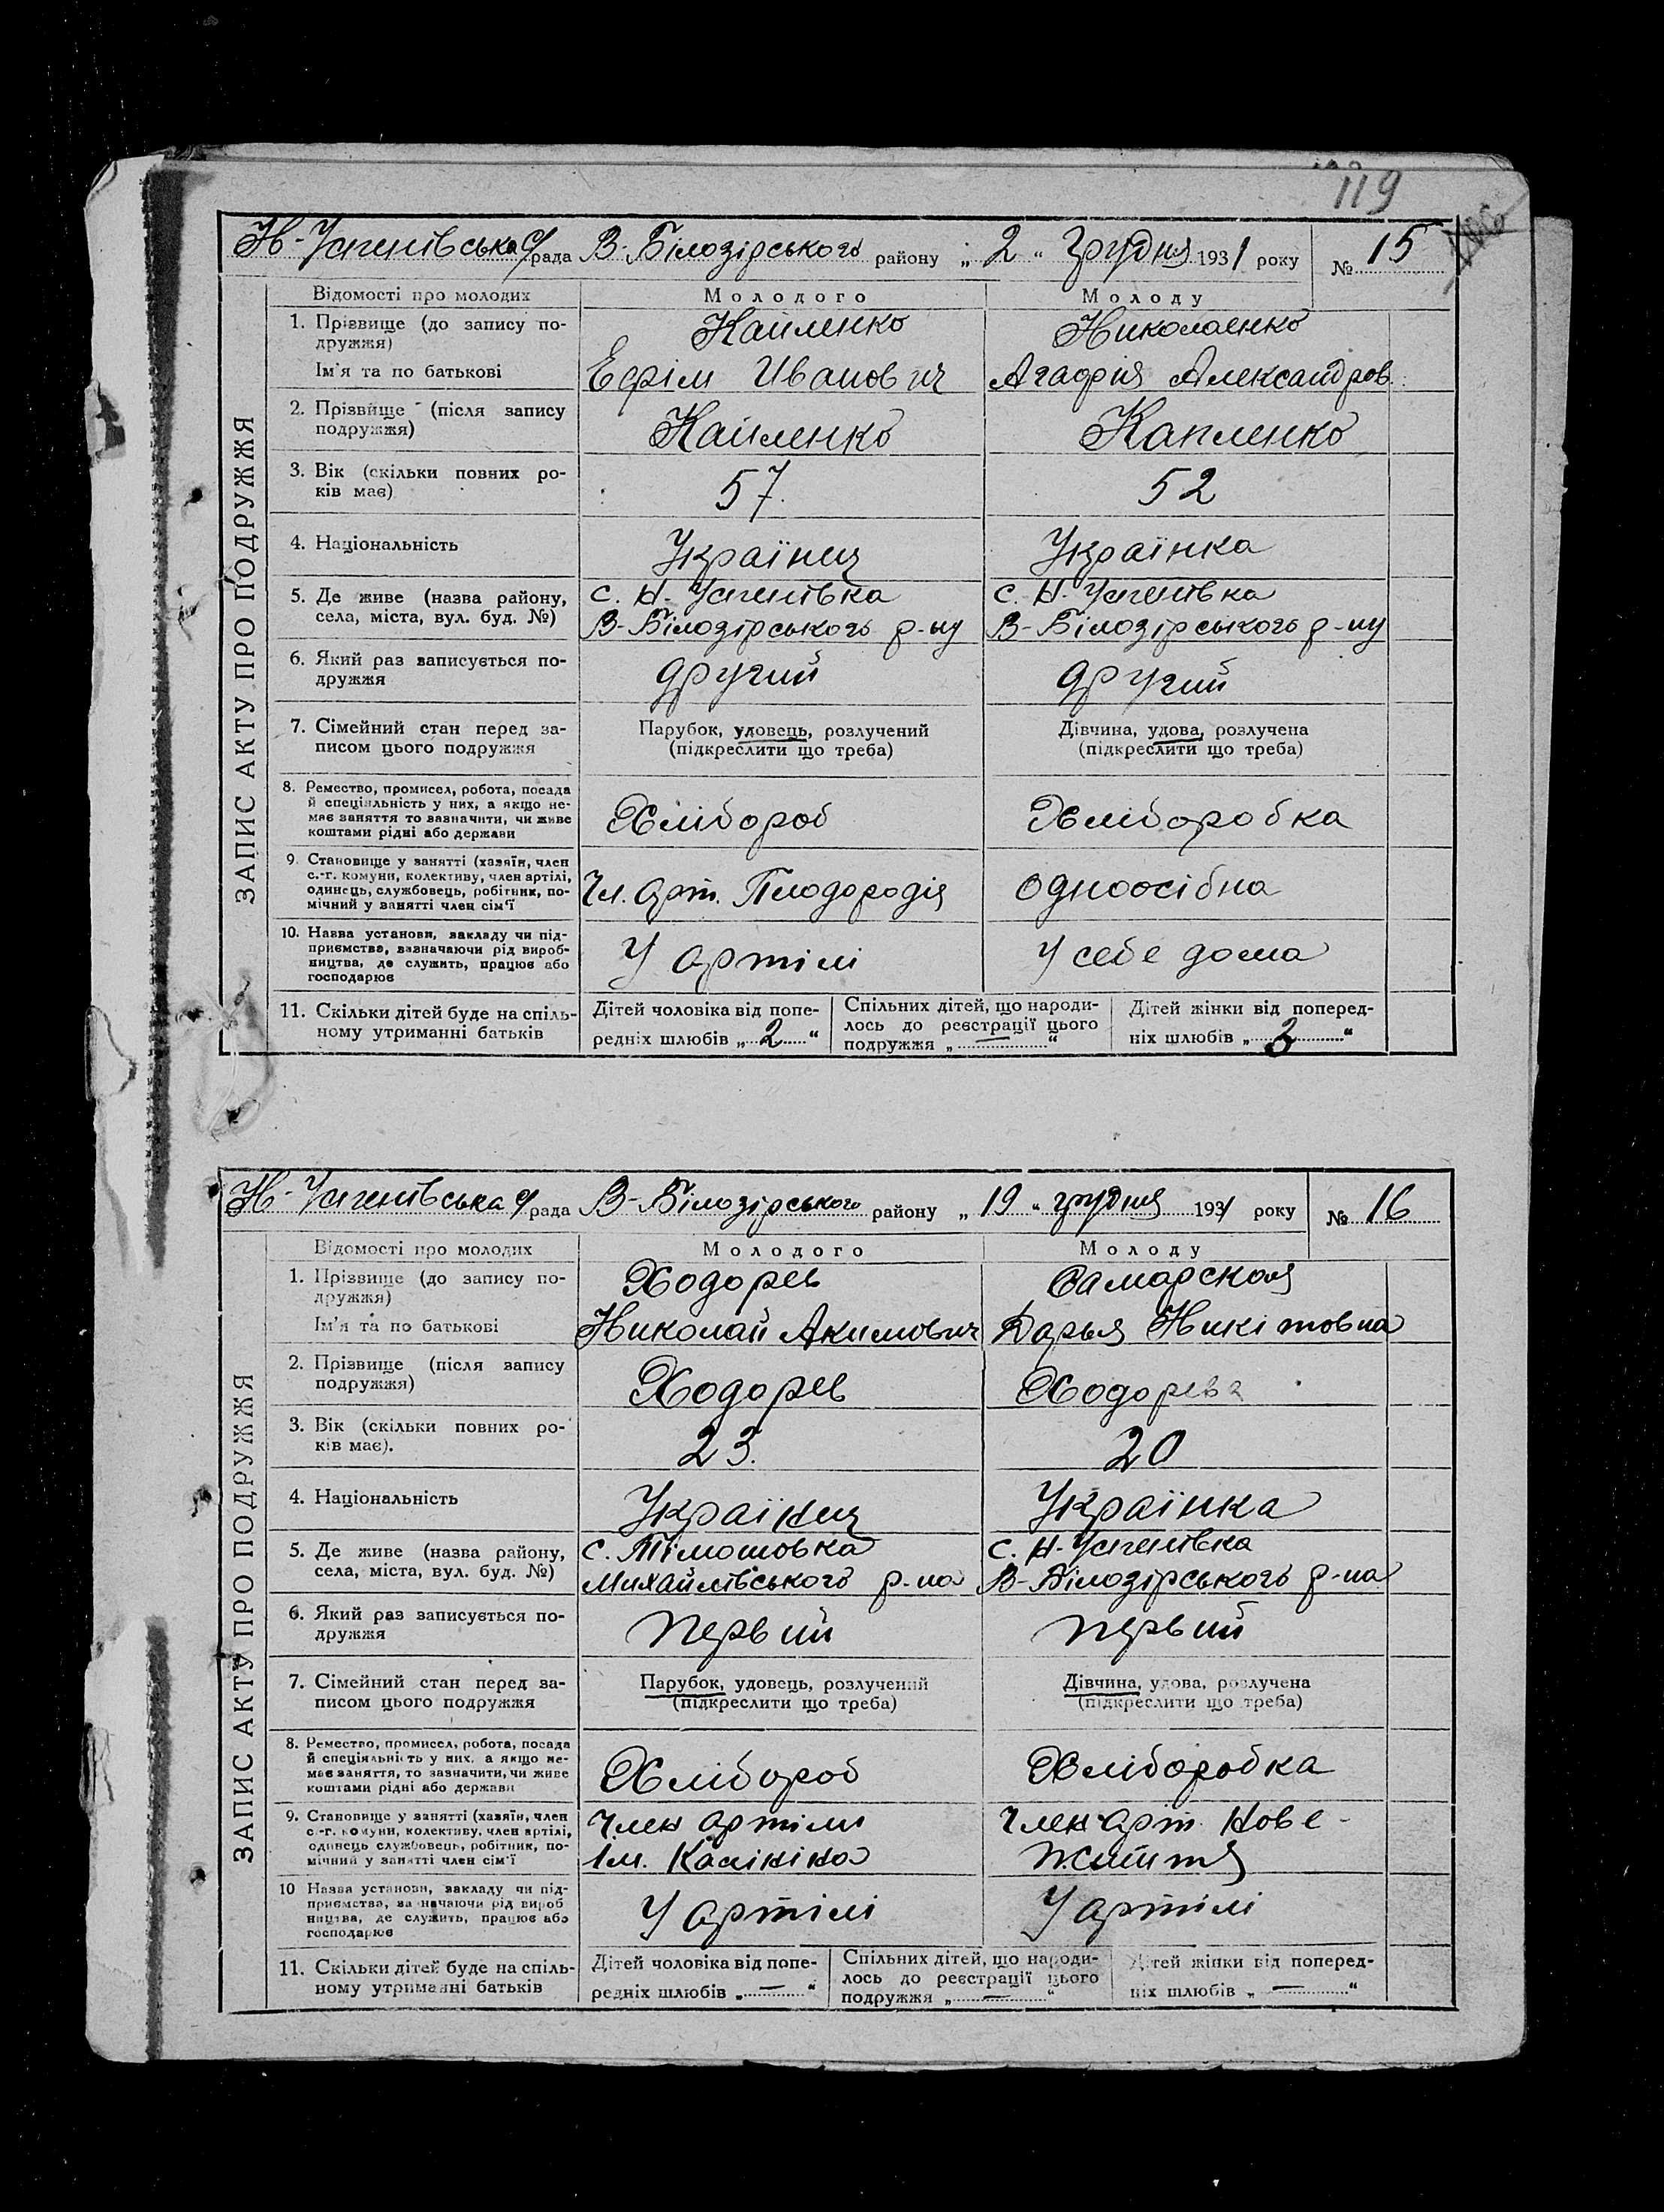 119
Н-Успенівська с/рада В-Білозірського району „ 2 “ грудня 1931 року № 15
ЗАПИС АКТУ ПРО ПОДРУЖЖЯ
Відомості про молодих Молодого Молоду
1. Прізвище (до запису по- Капленко Николаенко
дружжя)
Ім'я та по батькові Ефім Иванович Агафія Александров.
2. Прізвище (після запису Капленко Капленко
подружжя)
3. Вік (скільки повних ро- 57. 52
ків має)
4. Національність Українець Українка
5. Де живе (назва району, с. Н-Успенівка с. Н-Успенівка
села, міста, вул. буд. №) В-Білозірського р-ну В-Білозірського р-ну
6. Який раз записується по- другий другий
дружжя
7. Сімейний стан перед за- Парубок, удовець, розлучений Дівчина, удова, розлучена
писом цього подружжя (підкреслити що треба) (підкреслити що треба)
8. Ремество, промисел, робота, посада
й спеціяльність у них, а якщо не-
має заняття то зазначити, чи живе Хлібороб Хліборобка
коштами рідні або держави
9. Становище у занятті (хазяїн, член
с.-г. комуни, колективу, член артілі, Чл. арт. Плодородія одноосібна
одинець, службовець, робітник, по-
мічний у занятті член сім'ї
10. Назва установи, закладу чи під-
приємства, зазначаючи рід вироб- У артілі У себе дома
ництва, де служить, працює або
господарює
11. Скільки дітей буде на спіль- Дітей чоловіка від попе- Спільних дітей, що народи- Дітей жінки від поперед-
ному утриманні батьків редніх шлюбів „ 2 “ лось до реєстрації цього ніх шлюбів „ 3 “
подружжя „ — “
Н-Успенівська с/рада В-Білозірського району „ 19 “ грудня 1931 року № 16
ЗАПИС АКТУ ПРО ПОДРУЖЖЯ
Відомості про молодих Молодого Молоду
1. Прізвище (до запису по- Ходорев Самарская
дружжя)
Ім'я та по батькові Николай Акимович Дарья Никітовна
2. Прізвище (після запису Ходорев Ходорева
подружжя)
3. Вік (скільки повних ро- 23. 20
ків має).
4. Національність Українець Українка
5. Де живе (назва району, с. Тімошовка с. Н-Успенівка
села, міста, вул. буд. №) Михайлівського р-на В-Білозірського р-на
6. Який раз записується по- первий первий
дружжя
7. Сімейний стан перед за- Парубок, удовець, розлучений Дівчина, удова, розлучена
писом цього подружжя (підкреслити що треба) (підкреслити що треба)
8. Ремество, промисел, робота, посада
й спеціяльність у них, а якщо не-
має заняття, то зазначити, чи живе Хлібороб Хліборобка
коштами рідні або держави
9. Становище у занятті (хазяїн, член Член артіли Член арт. Нове-
с.-г. комуни, колективу, член артілі, Ім. Калініна Життя
одинець службовець, робітник, по-
мічний у занятті член сім'ї
10 Назва установи, закладу чи під-
приємства, зазначаючи рід вироб У артілі У артілі
ництва, де служить, працює або
господарює
11. Скільки дітей буде на спіль- Дітей чоловіка від попе- Спільних дітей, що народи- Дітей жінки від поперед-
ному утриманні батьків редніх шлюбів „ — “ лось до реєстрації цього ніх шлюбів „ — “
подружжя „ — “